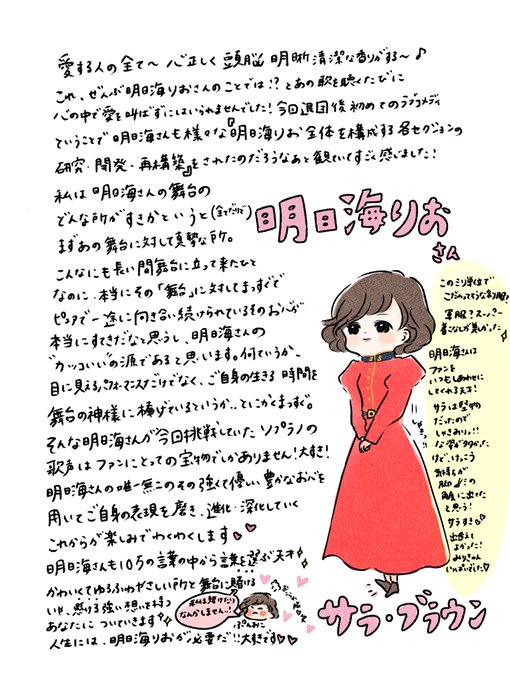 愛する人の全て〜 心正しく 頭脳 明晰 清潔な香りがする〜♪
これ、ぜんぶ明日海りおさんのことでは!? とあの歌を聴くたびに
心の中で愛を叫ばずにはいられませんでした! 今回退団後初めてのラブコメディ
ということで 明日海さんも様々な『明日海りお全体を構成する各セクションの
研究・開発・再構築』をされたのだろうなあと観ていてすごく感じました!
私は 明日海さんの舞台の
どんな所がすきかというと(全てだけど)
まずあの舞台に対して真摯な所。
こんなにも長い間舞台に立って来たひと
なのに、本当にその「舞台」に対してまっすぐで
ピュアで一途に向き合い続けられているそのお心が
本当にすてきだなと思うし、明日海さんの
"カッコいい"の源であると思います。何ていうか、
目に見えるパフォーマンスだけでなく、ご自身の生きる時間を
舞台の神様に捧げているというか‥とにかくまっすぐ。
そんな明日海さんが今回挑戦していたソプラノの
歌声はファンにとっての宝物でしかありません!大すき!
明日海さんの唯一無二のその強くて優しい豊かなお心を
用いてご自身の表現を磨き、進化・深化していく
これからが楽しみでわくわくします
明日海さんも10万の言葉の中から言葉を選ぶ天才
かわいくてゆるふわやさしい所と舞台に賭ける
いや、懸ける強い想いを持つ
あなたについていきます
人生には、明日海りおが必要だ!!大すきです
私は賭けたり
なんかしません‥!
ぷんみこ
明日海りお
さん
このミリ単位で
こだわってそうな制服!
軍服?スーパー
着こなしが美しかった
明日海さんは
ファンを
いつもしあわせに
してくれる天才!
サラは堅物
だったので
しゃきおりっ!!
な姿が多かった
けど、けっこう
気持ちが
態度に出てた
と思う!
サラすき
出会えて
よかった!
みりちゃん
いっぱいでした
サラ・ブラウン